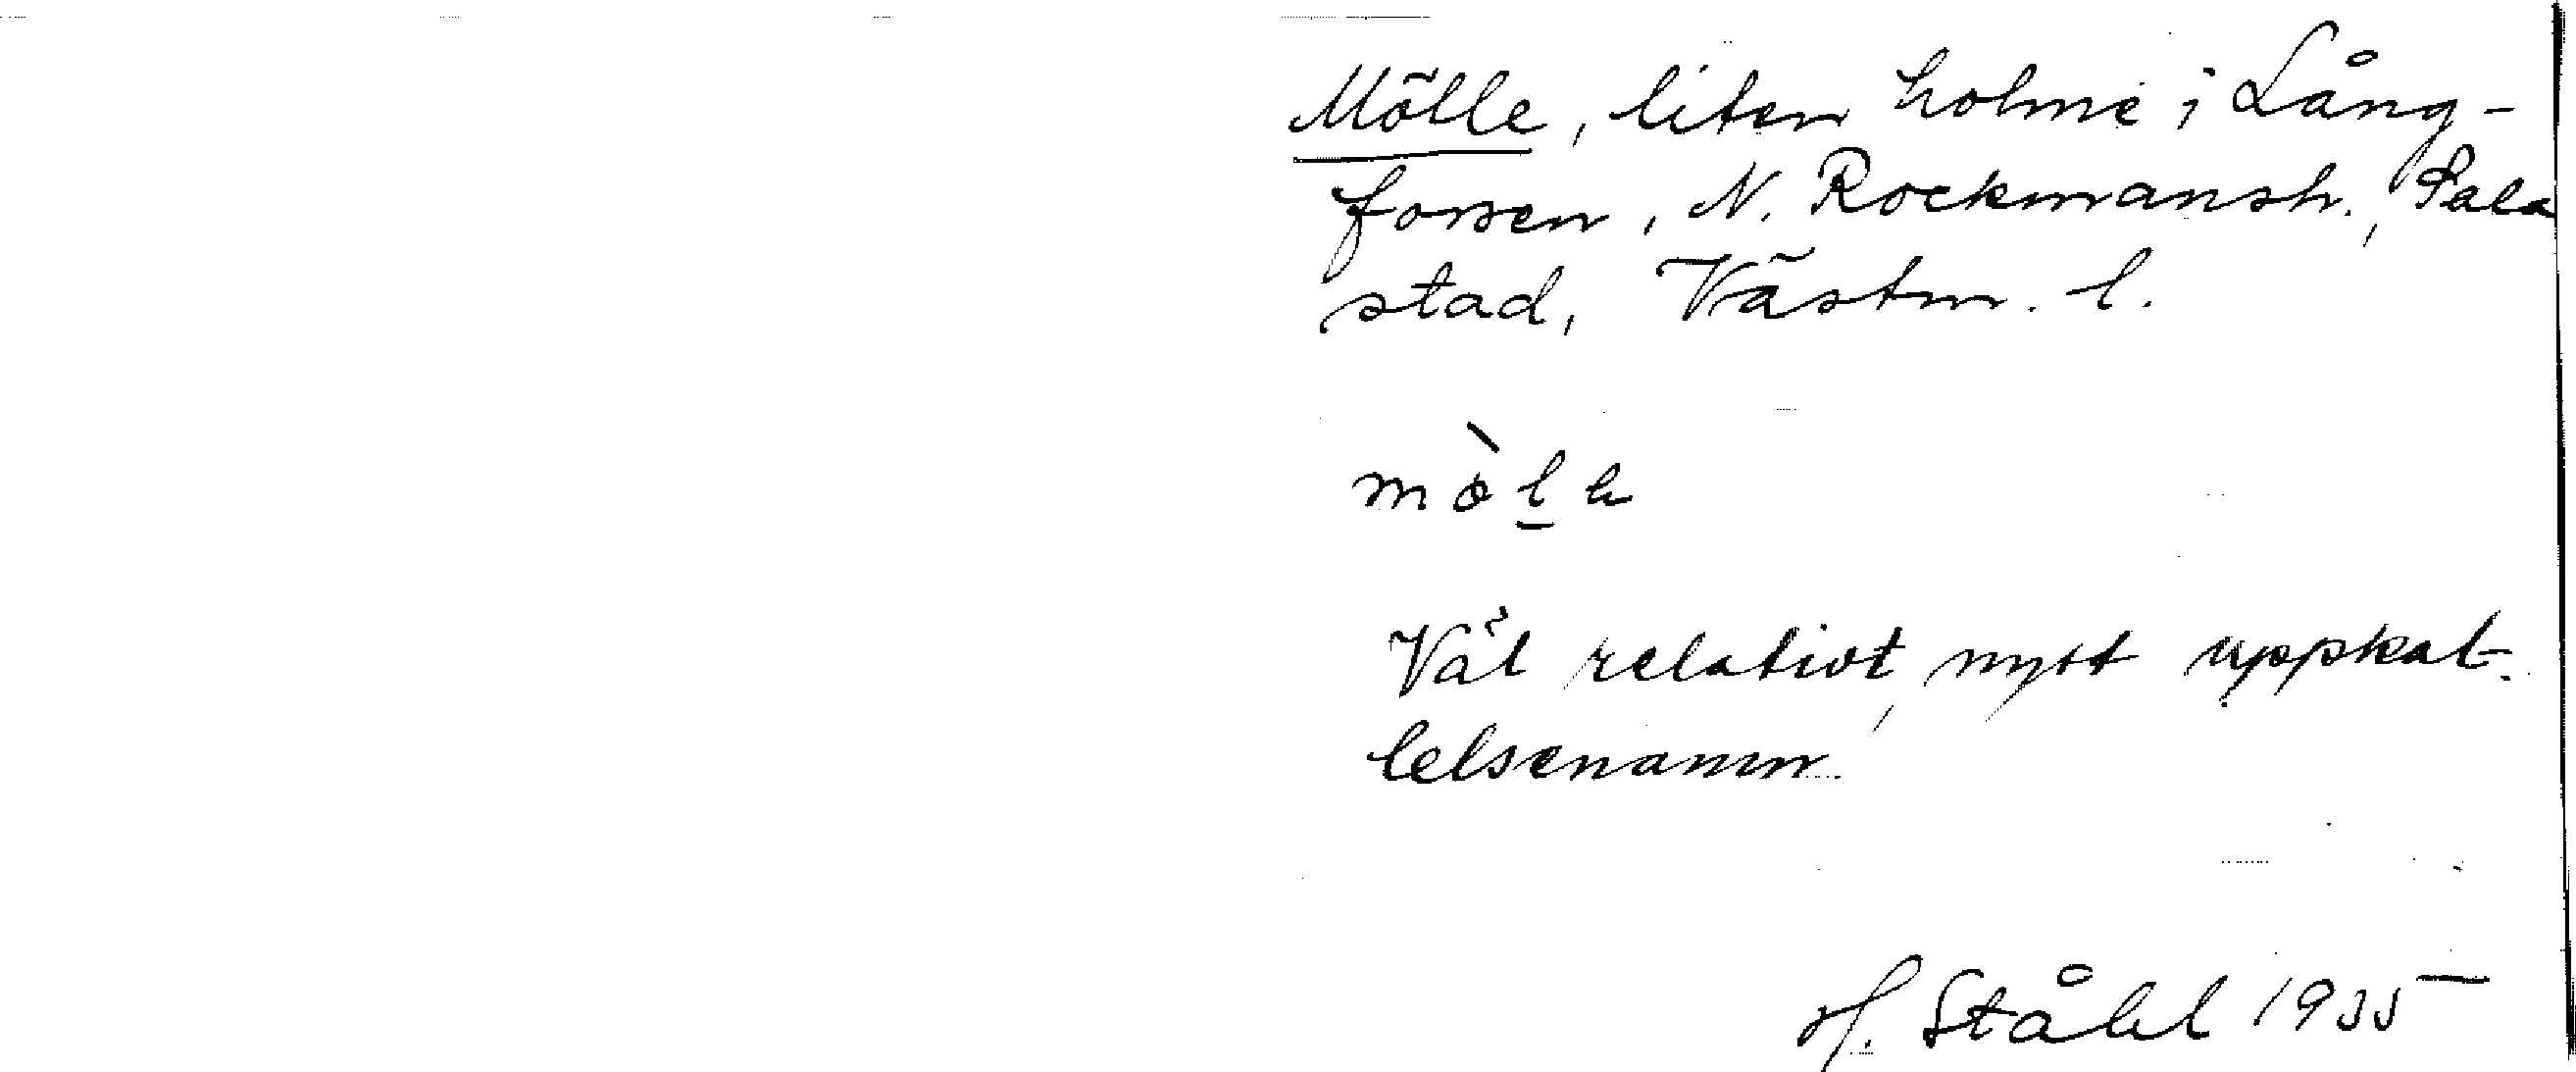 Mölle, liten holme i Lång-
forsen, N. Rockmansh., Sala
stad, Västm. l.
mòle
Väl relativt nytt uppkal-
lelsenamn
H. Ståhl 1935